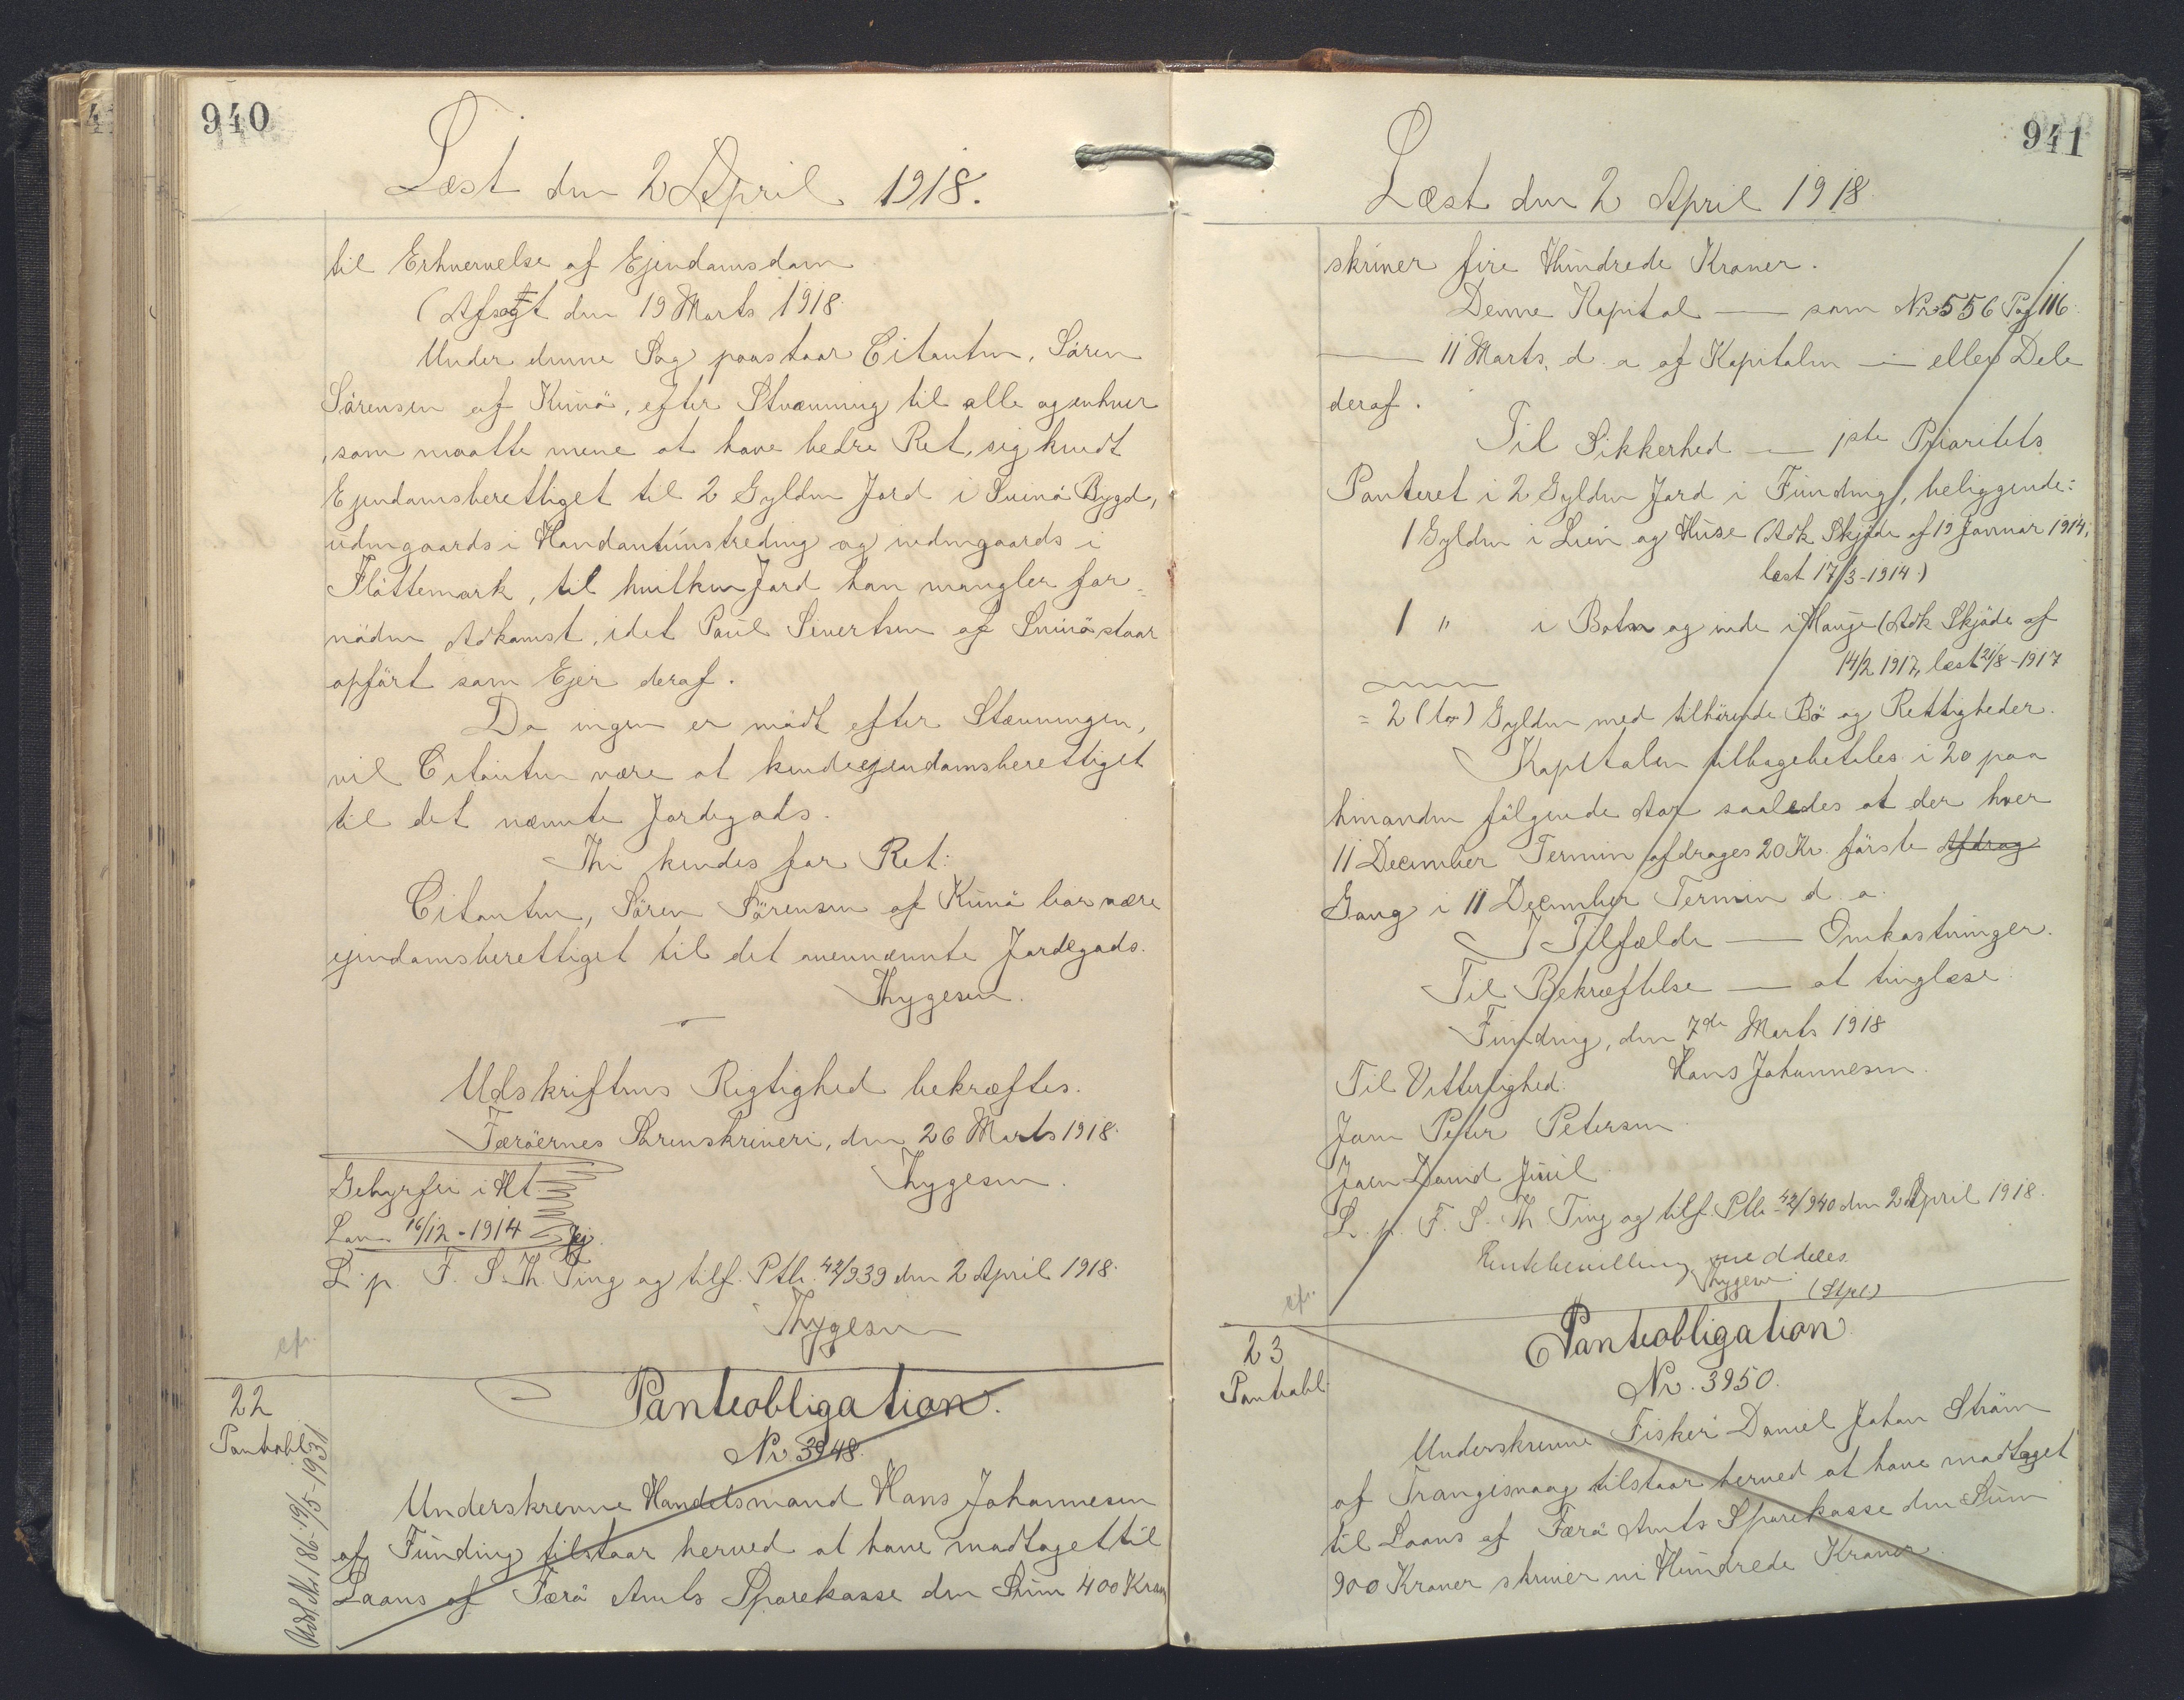 940
Læst den 2 April 1918.
til Erhvervelse af Ejendomsdom
(Afsagt den 19 Marts 1918.
Under denne Sag paastaar Citanten, Sören
Sörensen af Kunö, efter Stævning til alle og enhver
som maatte mene at have bedre Ret, sig kendt
Ejendomsberettiget til 2 Gylden Jord i Svinö Bygd,
udengaards i Handantúnstreding og indengaards i
Flöttemark, til hvilken Jord han mangler for=
nöden Adkomst, idet Poul Sivertsen af Svinö staar
opfört som Ejer deraf.
Da ingen er mödt efter Stævningen,
vil Citanten være at kende ejendomsberettiget
til det nævnte Jordegods.
Thi kendes for Ret:
Citanten, Sören Sörensen af Kunö bör være
ejendomsberettiget til det ovennævnte Jordegods.
Thygesen.
Udskriftens Rigtighed bekræftes.
Færöernes Sorenskriveri, den 26 Marts 1918.
Thygesen.
Gebyrfri i Ht.
Lov 16/12-1914
L. p. F. S. Th. Ting og tilf. Ptb. 42/939 den 2 April 1918.
Thygesen
cfr.
22
Pantobl.
Udsl. Nr. 186-19/5-1931
Panteobligation.
Nr. 3948.
Underskrevne Handelsmand Hans Johannesen
af Funding tilstaar herved at have modtaget til
Laans af Færö Amts Sparekasse den Sum 400 Kron
941
Læst den 2 April 1918
skriver fire Hundrede Kroner.
Denne Kapital — som Nr 556 Pag 116
— 11 Marts, d. a. af Kapitalen — eller Dele
deraf.
Til Sikkerhed — 1ste Prioritets
Panteret i 2 Gylden Jord i Funding, beliggende:
1 Gylden i Lien og Huse (Adk Skjöde af 19 Januar 1914,
læst 17/3-1914)
1 " i Botn og inde i Hauge (Adk Skjöde af
14/2 1917, læst 21/8-1917
= 2 (to) Gylden med tilhörende Bö og Rettigheder.
Kapitalen tilbagebetales i 20 paa
hinanden fölgende Aar saaledes at der hver
11 December Termin afdrages 20 Kr. förste Afdrag
Gang i 11 December Termin d. a.
I Tilfælde — Omkostninger.
Til Bekræftelse — at tinglæse
Funding, den 7de Marts 1918
Hans Johannesen.
Til Vitterlighed:
Joen Peter Petersen
Joen David Juul
L. p. F. S. Th Ting og tilf. Ptb. 42/940 den 2 April 1918.
Rentebevilling meddeles
Thygesen (Stpl)
cfr.
23
Pantobl.
Panteobligation
Nr. 3950.
Underskrevne Fisker Daniel Johan Ström
af Trangisvaag tilstaar herved at have modtaget
til Laans af Færö Amts Sparekasse den Sum
900 Kroner skriver ni Hundrede Kroner.